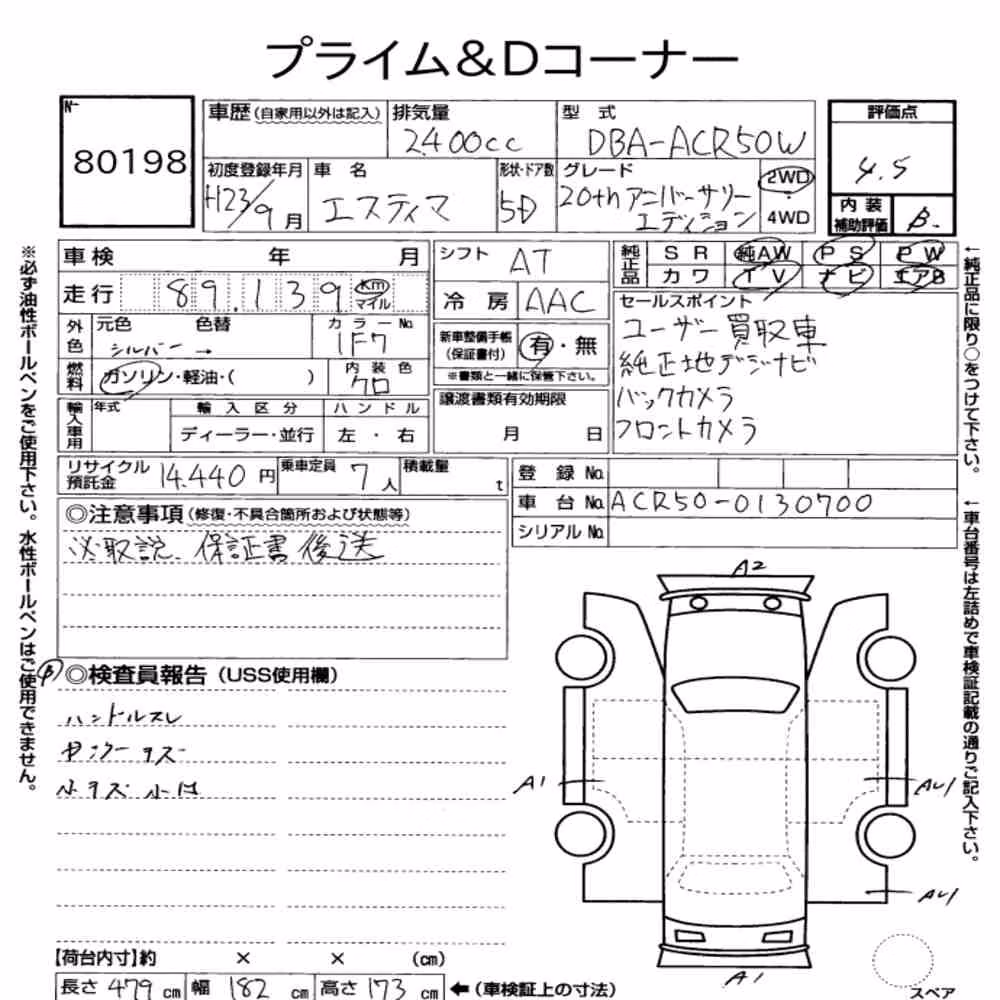 プライム&Dコーナー
No 80198
車歴(自家用以外は記入)
排気量 2400cc
型式 DBA-ACR50W
評価点 4.5
初度登録年月 H23/9月
車名 エスティマ
形状・ドア数 5D
グレード 20th アニバーサリー
エディション
2WD・4WD
内装補助評価 B.
車検 年 月
走行 89.139 Km マイル
外色 元色 色替 シルバー →
カラーNo. 1F7
燃料 ガソリン・軽油・( )
内装色 クロ
輸入車用 年式
輸入区分 ディーラー・並行
ハンドル 左・右
シフト AT
冷房 AAC
新車整備手帳(保証書付) 有・無
※書類と一緒に保管下さい。
譲渡書類有効期限
月 日
純正品 SR 純AW PS PW
カワ TV ナビ エアB
セールスポイント
ユーザー買取車
純正地デジナビ
バックカメラ
フロントカメラ
リサイクル預託金 14.440円
乗車定員 7人
積載量 t
登録No.
車台No. ACR50-0130700
シリアルNo.
◎注意事項(修復・不具合箇所および状態等)
取説、保証書後送
◎検査員報告(USS使用欄)
ハンドルスレ
小キズ 小凹
A2
A1
A1
スペア
【荷台内寸】約 × × (cm)
長さ 479cm 幅 182cm 高さ 173cm ←(車検証上の寸法)
※必ず油性ボールペンをご使用下さい。水性ボールペンはご使用できません。
←純正品に限り○をつけて下さい。
←車台番号は左詰めで車検証記載の通りご記入下さい。